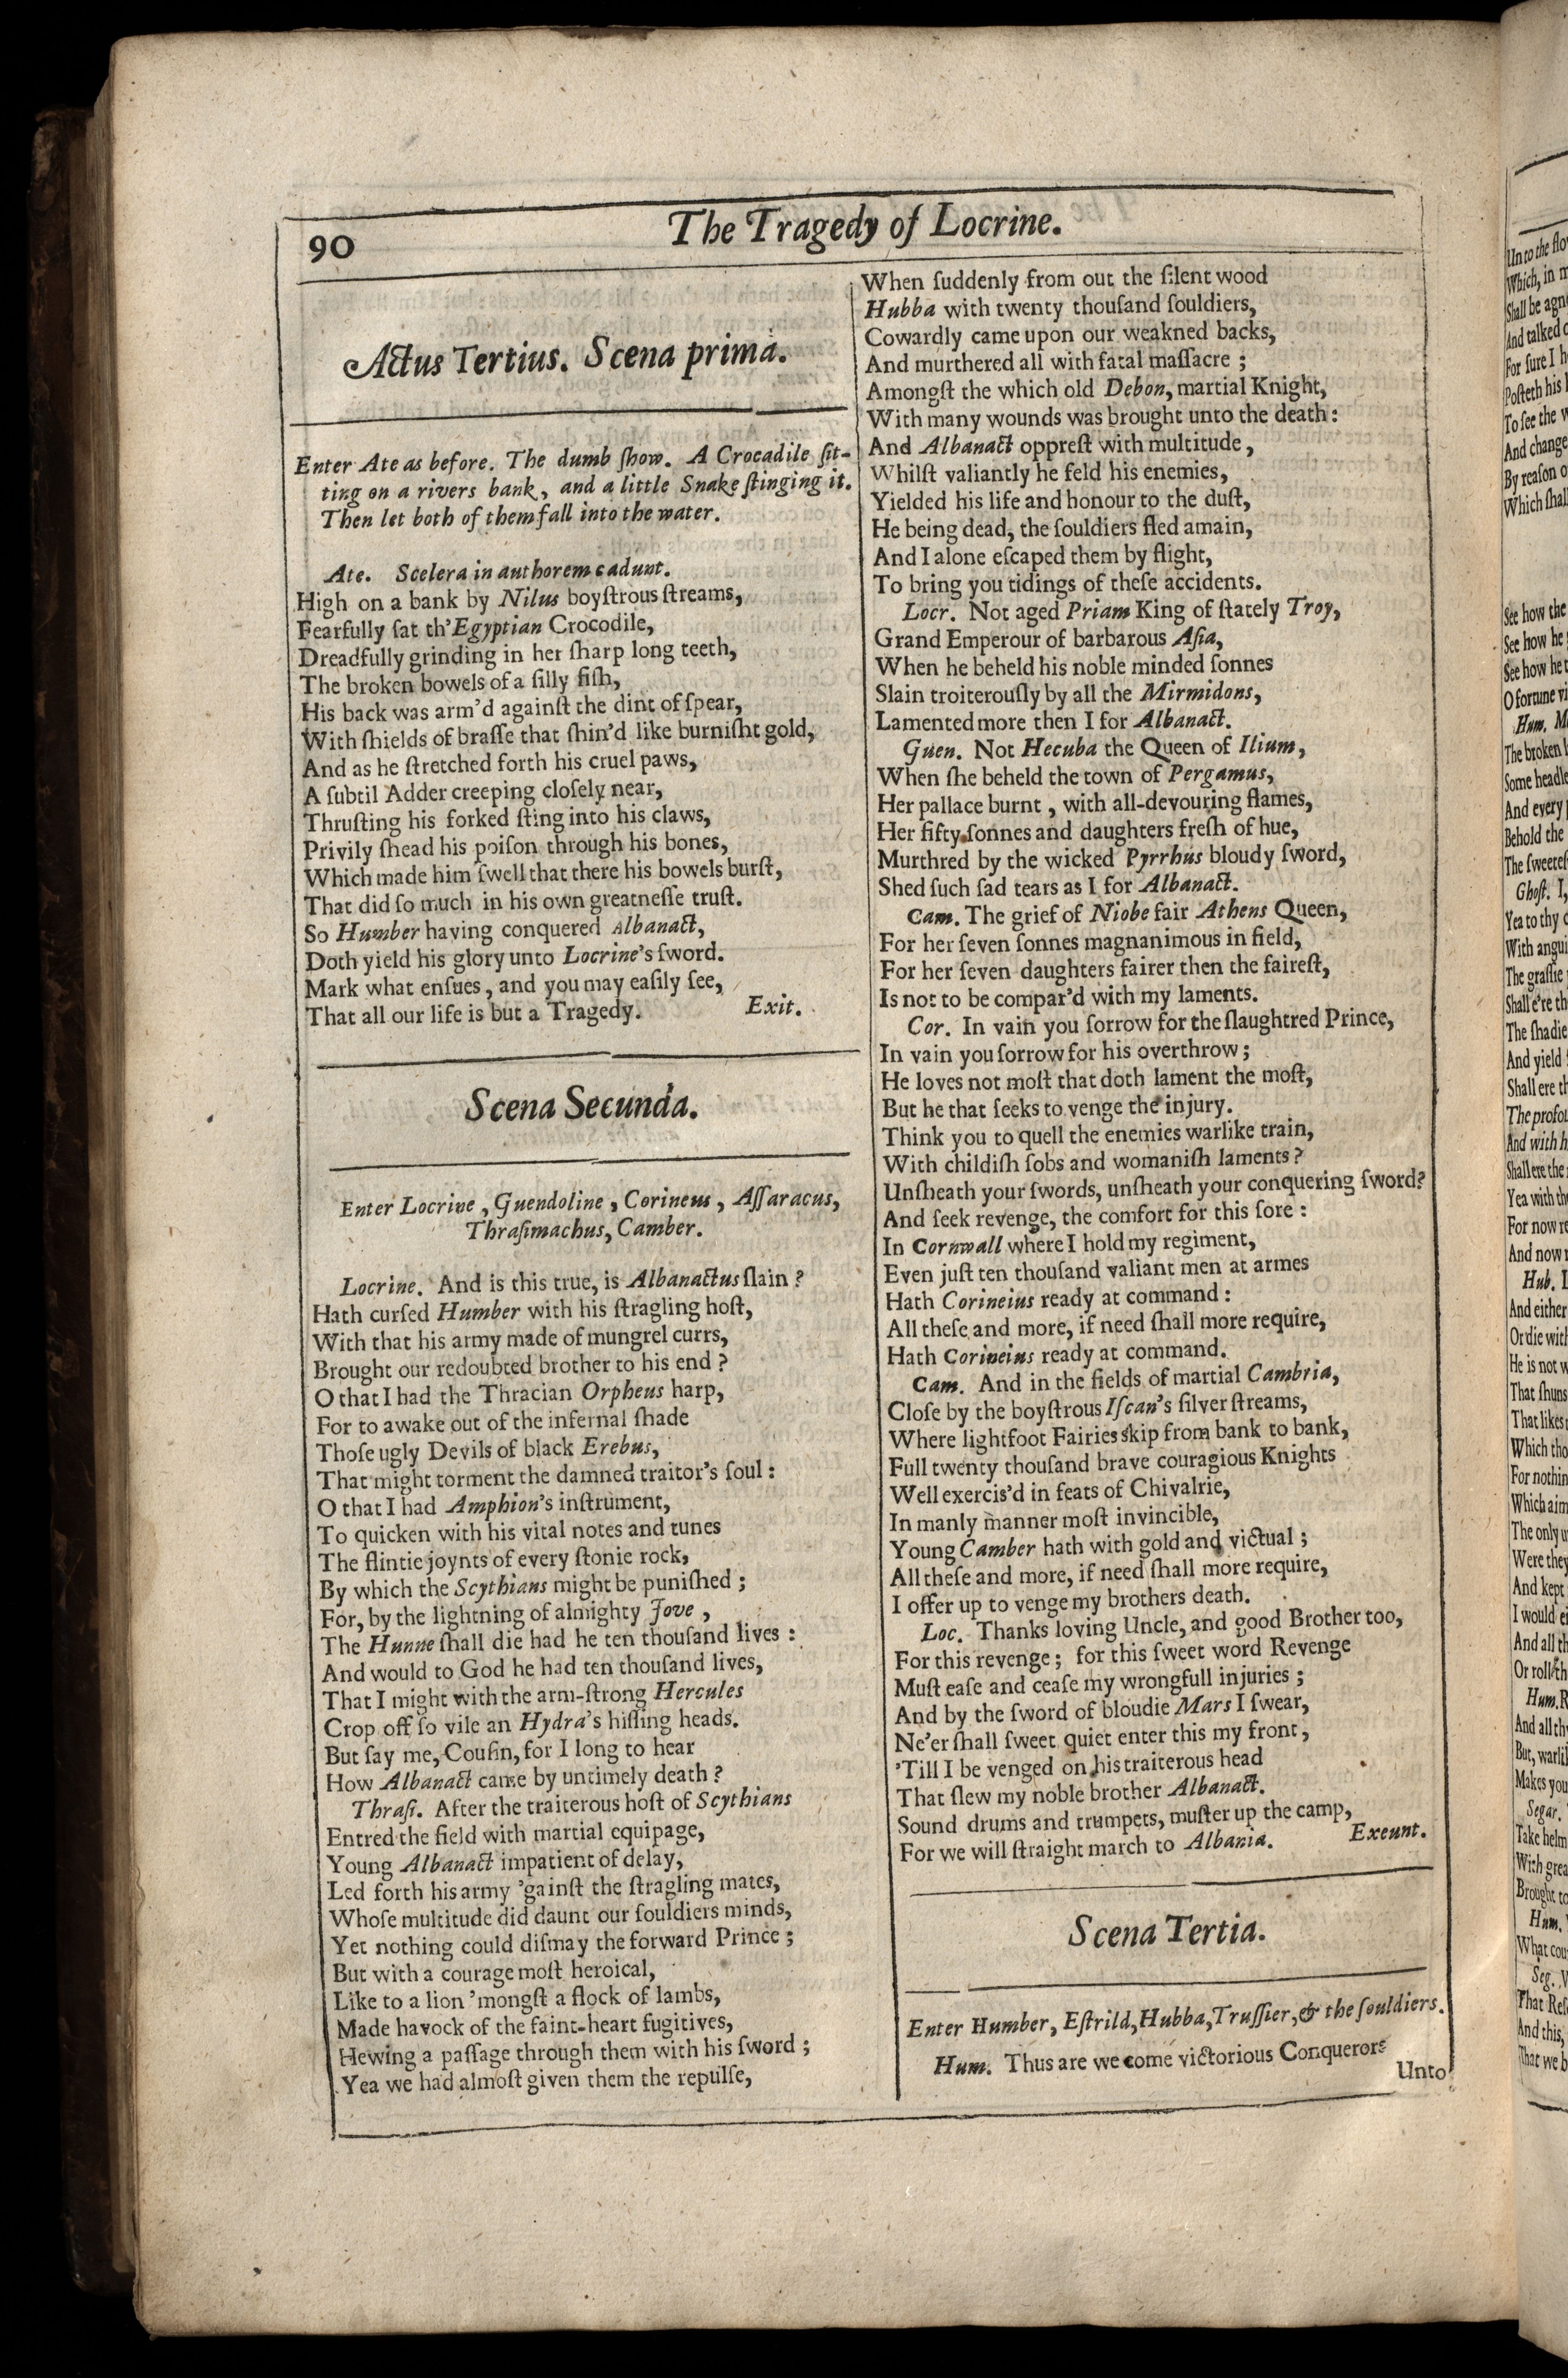 90
The Tragedy of Locrine.
Actus Tertius. Scena prima.
Enter Ate as before. The dumb ſhow. A Crocadile ſit-
ting on a rivers bank, and a little Snake ſtinging it.
Then let both of them fall into the water.
Ate. Scelera in authorem cadunt.
High on a bank by Nilus boyſtrous ſtreams,
Fearfully ſat th'Egyptian Crocodile,
Dreadfully grinding in her ſharp long teeth,
The broken bowels of a ſilly fiſh,
His back was arm'd againſt the dint of ſpear,
With ſhields of braſſe that ſhin'd like burniſht gold,
And as he ſtretched forth his cruel paws,
A ſubtil Adder creeping cloſely near,
Thruſting his forked ſting into his claws,
Privily ſhead his poiſon through his bones,
Which made him ſwell that there his bowels burſt,
That did ſo much in his own greatneſſe truſt.
So Humber having conquered Albanact,
Doth yield his glory unto Locrine's ſword.
Mark what enſues, and you may eaſily ſee,
That all our life is but a Tragedy. Exit.
Scena Secunda.
Enter Locrine, Guendoline, Corineus, Aſſaracus,
Thraſimachus, Camber.
Locrine. And is this true, is Albanactus ſlain?
Hath curſed Humber with his ſtragling hoſt,
With that his army made of mungrel currs,
Brought our redoubted brother to his end?
O that I had the Thracian Orpheus harp,
For to awake out of the infernal ſhade
Thoſe ugly Devils of black Erebus,
That might torment the damned traitor's ſoul:
O that I had Amphion's inſtrument,
To quicken with his vital notes and tunes
The flintie joynts of every ſtonie rock,
By which the Scythians might be puniſhed;
For, by the lightning of almighty Jove,
The Hunne ſhall die had he ten thouſand lives:
And would to God he had ten thouſand lives,
That I might with the arm-ſtrong Hercules
Crop off ſo vile an Hydra's hiſſing heads.
But ſay me, Couſin, for I long to hear
How Albanact came by untimely death?
Thraſi. After the traiterous hoſt of Scythians
Entred the field with martial equipage,
Young Albanact impatient of delay,
Led forth his army 'gainſt the ſtragling mates,
Whoſe multitude did daunt our ſouldiers minds,
Yet nothing could diſmay the forward Prince;
But with a courage moſt heroical,
Like to a lion 'mongſt a flock of lambs,
Made havock of the faint-heart fugitives,
Hewing a paſſage through them with his ſword;
Yea we had almoſt given them the repulſe,
When ſuddenly from out the ſilent wood
Hubba with twenty thouſand ſouldiers,
Cowardly came upon our weakned backs,
And murthered all with fatal maſſacre;
Amongſt the which old Debon, martial Knight,
With many wounds was brought unto the death:
And Albanact oppreſt with multitude,
Whilſt valiantly he feld his enemies,
Yielded his life and honour to the duſt,
He being dead, the ſouldiers fled amain,
And I alone eſcaped them by flight,
To bring you tidings of theſe accidents.
Locr. Not aged Priam King of ſtately Troy,
Grand Emperour of barbarous Aſia,
When he beheld his noble minded ſonnes
Slain troiterouſly by all the Mirmidons,
Lamented more then I for Albanact.
Guen. Not Hecuba the Queen of Ilium,
When ſhe beheld the town of Pergamus,
Her pallace burnt, with all-devouring flames,
Her fifty ſonnes and daughters freſh of hue,
Murthred by the wicked Pyrrhus bloudy ſword,
Shed ſuch ſad tears as I for Albanact.
Cam. The grief of Niobe fair Athens Queen,
For her ſeven ſonnes magnanimous in field,
For her ſeven daughters fairer then the faireſt,
Is not to be compar'd with my laments.
Cor. In vain you ſorrow for the ſlaughtred Prince,
In vain you ſorrow for his overthrow;
He loves not moſt that doth lament the moſt,
But he that ſeeks to venge the injury.
Think you to quell the enemies warlike train,
With childiſh ſobs and womaniſh laments?
Unſheath your ſwords, unſheath your conquering ſword?
And ſeek revenge, the comfort for this ſore:
In Cornwall where I hold my regiment,
Even juſt ten thouſand valiant men at armes
Hath Corineius ready at command:
All theſe and more, if need ſhall more require,
Hath Corineius ready at command.
Cam. And in the fields of martial Cambria,
Cloſe by the boyſtrous Iſcan's ſilver ſtreams,
Where lightfoot Fairies skip from bank to bank,
Full twenty thouſand brave couragious Knights
Well exercis'd in feats of Chivalrie,
In manly manner moſt invincible,
Young Camber hath with gold and victual;
All theſe and more, if need ſhall more require,
I offer up to venge my brothers death.
Loc. Thanks loving Uncle, and good Brother too,
For this revenge; for this ſweet word Revenge
Muſt eaſe and ceaſe my wrongfull injuries;
And by the ſword of bloudie Mars I ſwear,
Ne'er ſhall ſweet quiet enter this my front,
'Till I be venged on his traiterous head
That ſlew my noble brother Albanact.
Sound drums and trumpets, muſter up the camp,
For we will ſtraight march to Albania. Exeunt.
Scena Tertia.
Enter Humber, Eſtrild, Hubba, Truſſier, & the ſouldiers.
Hum. Thus are we come victorious Conquerors
Unto
Unto the
Which, in
Shall be
And talked
For ſure I
Poſteth his
To ſee the
And change
By reaſon
Which ſhall
See how the
See how he
See how he
O fortune
Hum.
The broken
Some
And every
Behold the
The
Ghoſt. I,
Yea to thy
With
The graſſie
Shall e're
The ſhadie
And yield
Shall ere
The
And with
Shall ere the
Yea with
For now
And now
Hub.
And either
Or die
He is not
That ſhuns
That likes
Which
For
Which aim
The only
Were they
And kept
I would
And all
Or
Hum.
And all
But,
Makes you
Segar.
Take helm
With
Brought to
Hum.
What
Seg.
That
And this,
That we